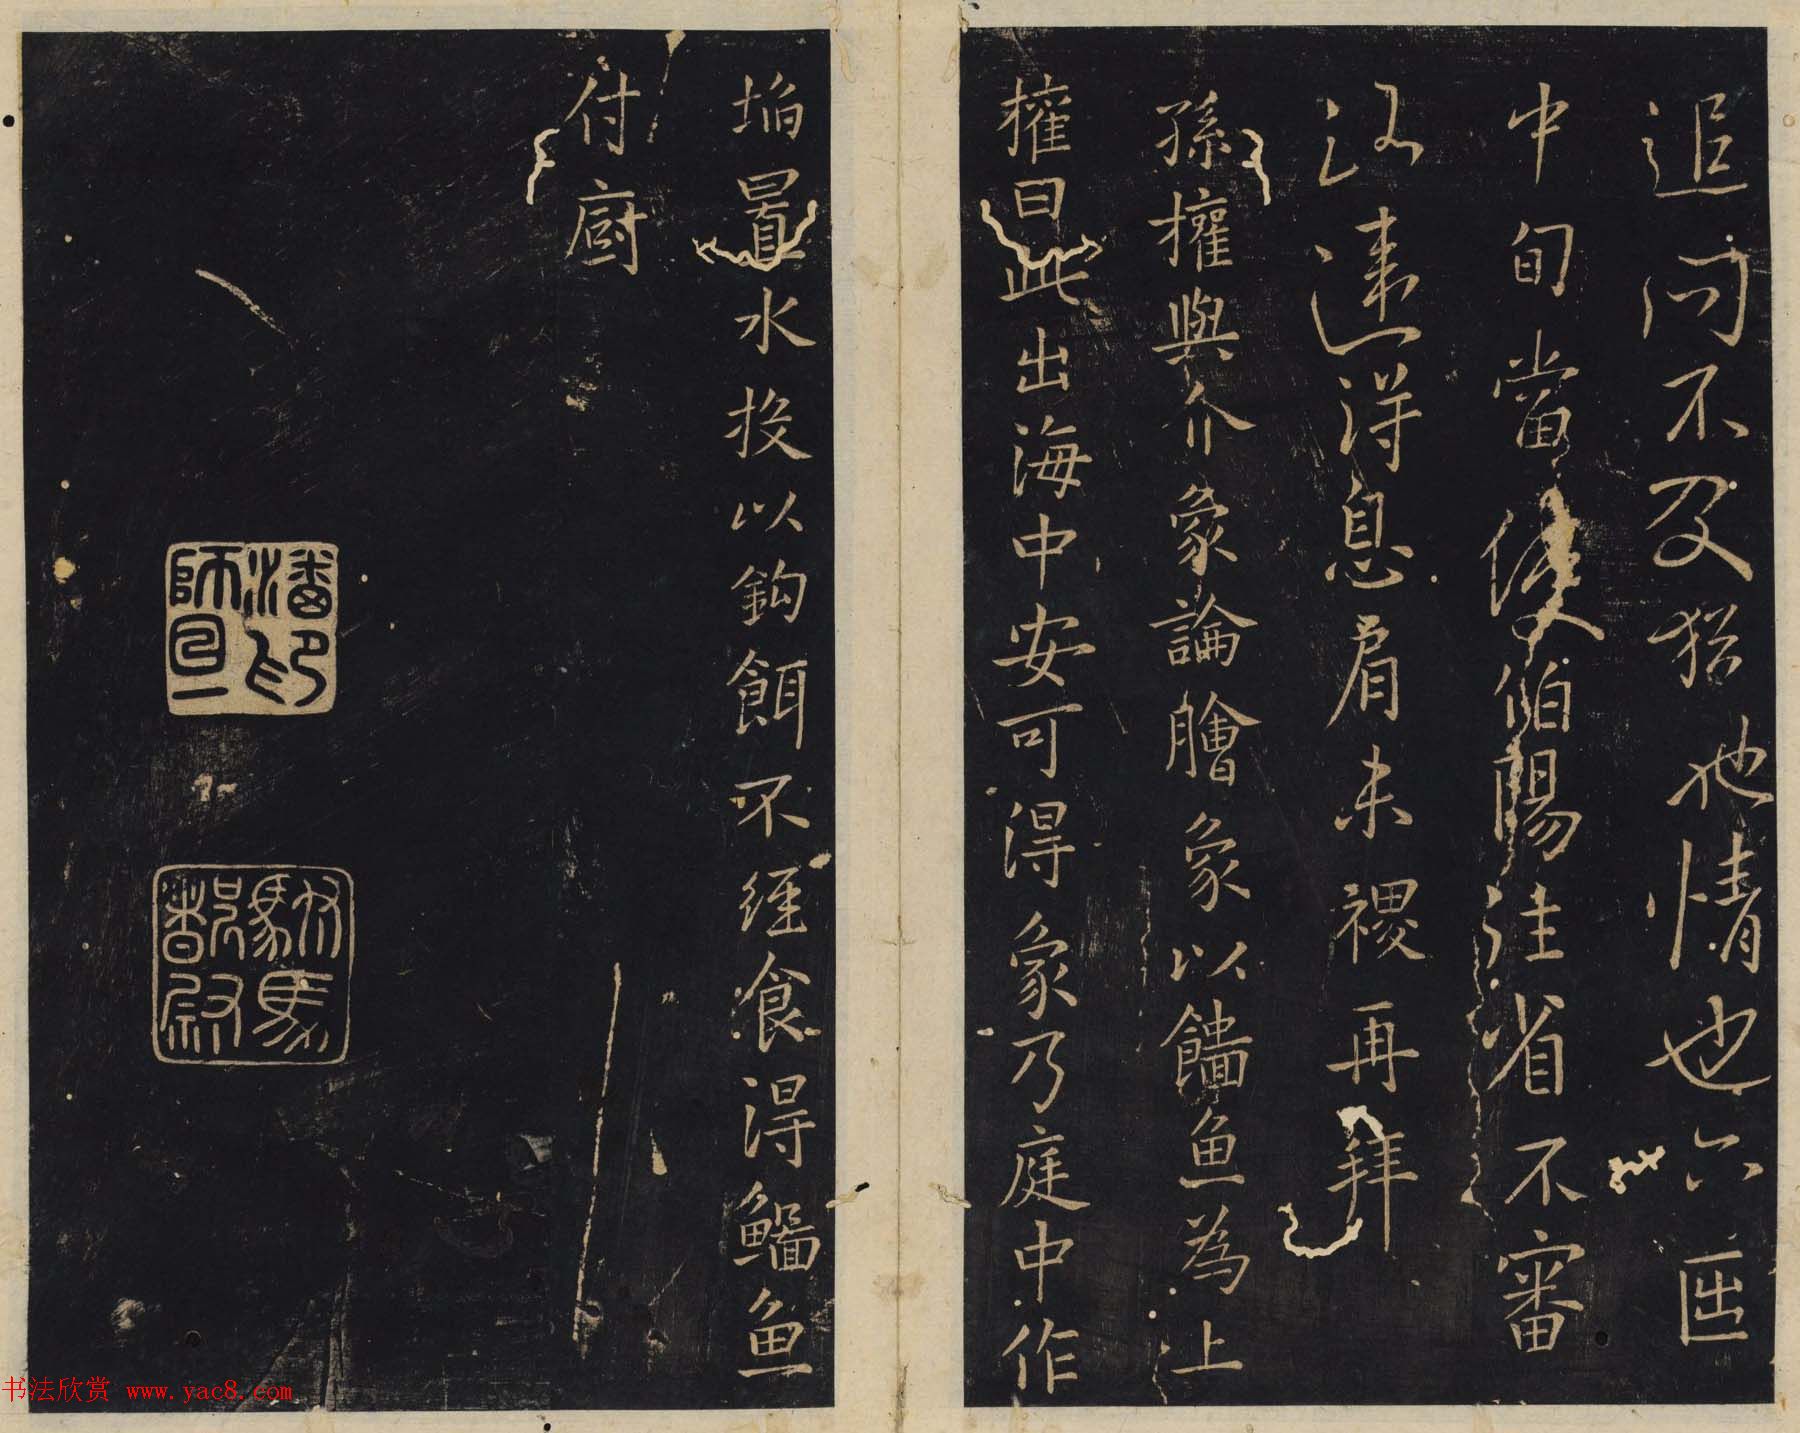 追問不及猶他情也
中旬當使伯陽往省不審
得息肩未稷再拜
孫權與介象論膾象以鯔魚為上
權曰此出海中安可得象乃庭中作
埳置水投以鈎餌不經食得鯔魚
付廚
潘師旦印
駙馬都尉
书法欣赏 www.yac8.com